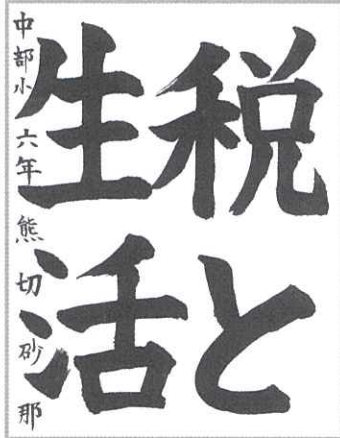 税と
生活
中部小 六年 熊切砂那